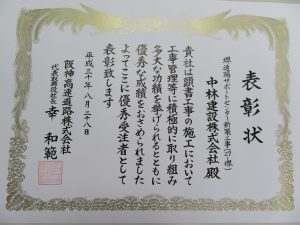 表彰状
堺道路サポートセンター新築工事(27-堺)
中林建設株式会社 殿
貴社は頭書工事の施工において
工事管理等に積極的に取り組み
多大な功績を挙げられるとともに
優秀な成績をおさめられました
よってここに優秀受注者として
表彰致します
平成三十年八月二十八日
阪神高速道路株式会社
代表取締役社長 幸 和範